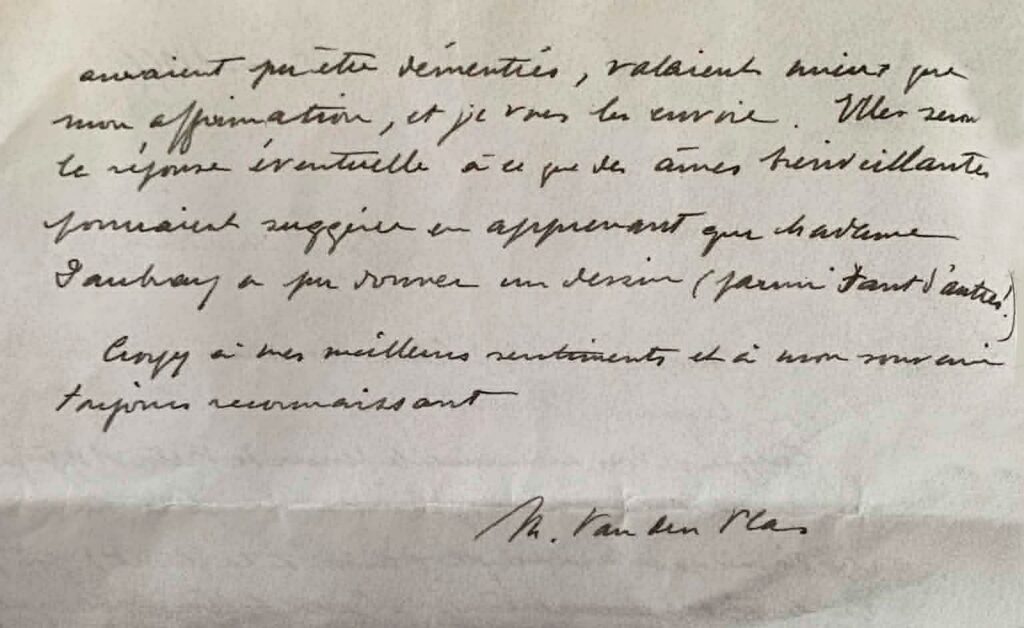 auraient pu être démenties, valaient mieux que
mon affirmation, et je vous les envoie. Elles seron
la réponse éventuelle à ce que des âmes bienveillantes
pourraient suggérer en apprenant que Madame
Daubray a pu donner un dessin (parmi tant d'autres!)
Croyez à mes meilleurs sentiments et à mon souvenir
toujours reconnaissant
M. Van den Plas